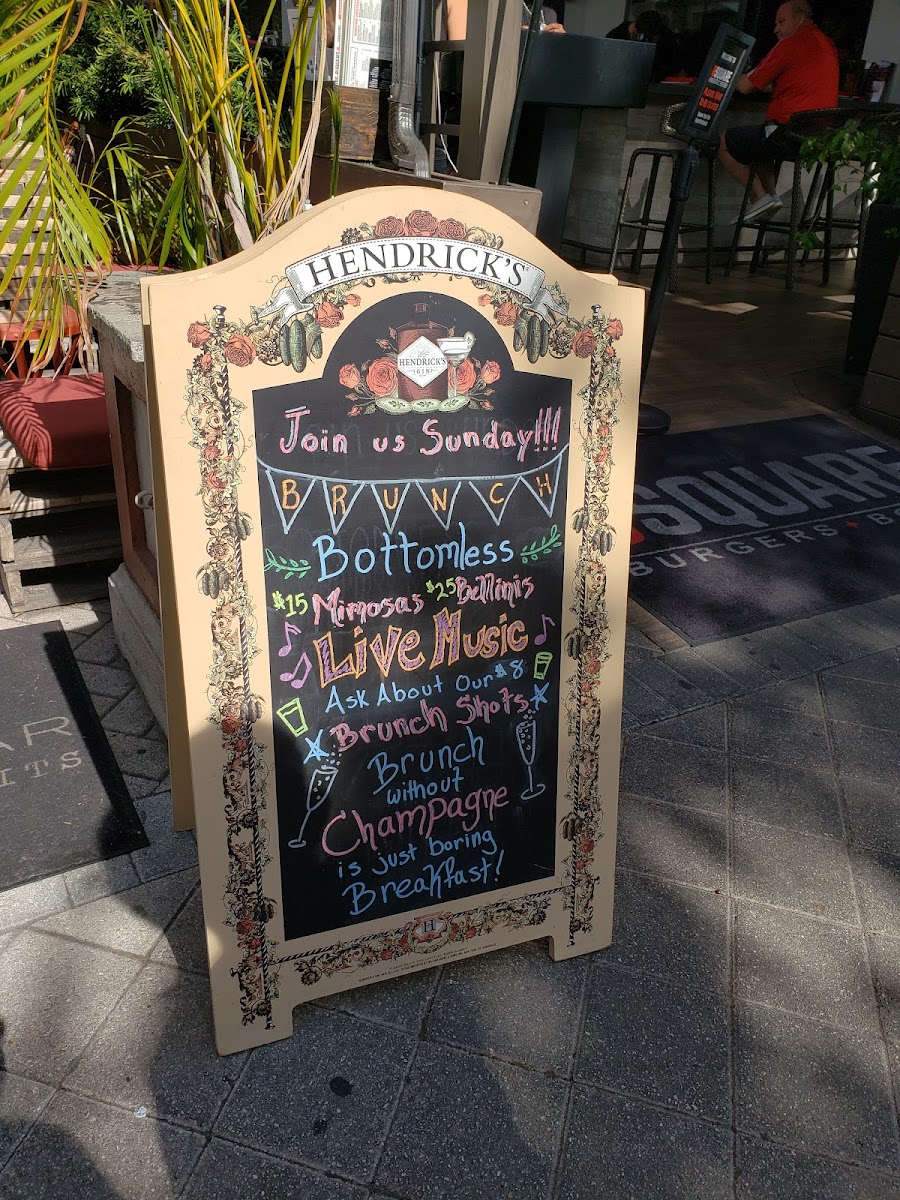 HENDRICK'S
HENDRICK'S
GIN
Join us Sunday!!!
BRUNCH
Bottomless
$15 Mimosas $25 Bellinis
Live Music
Ask About Our $8
Brunch Shots
Brunch
without
Champagne
is just boring
Breakfast!
H
SQUARE
SQUARE
BURGERS
AR
ITS